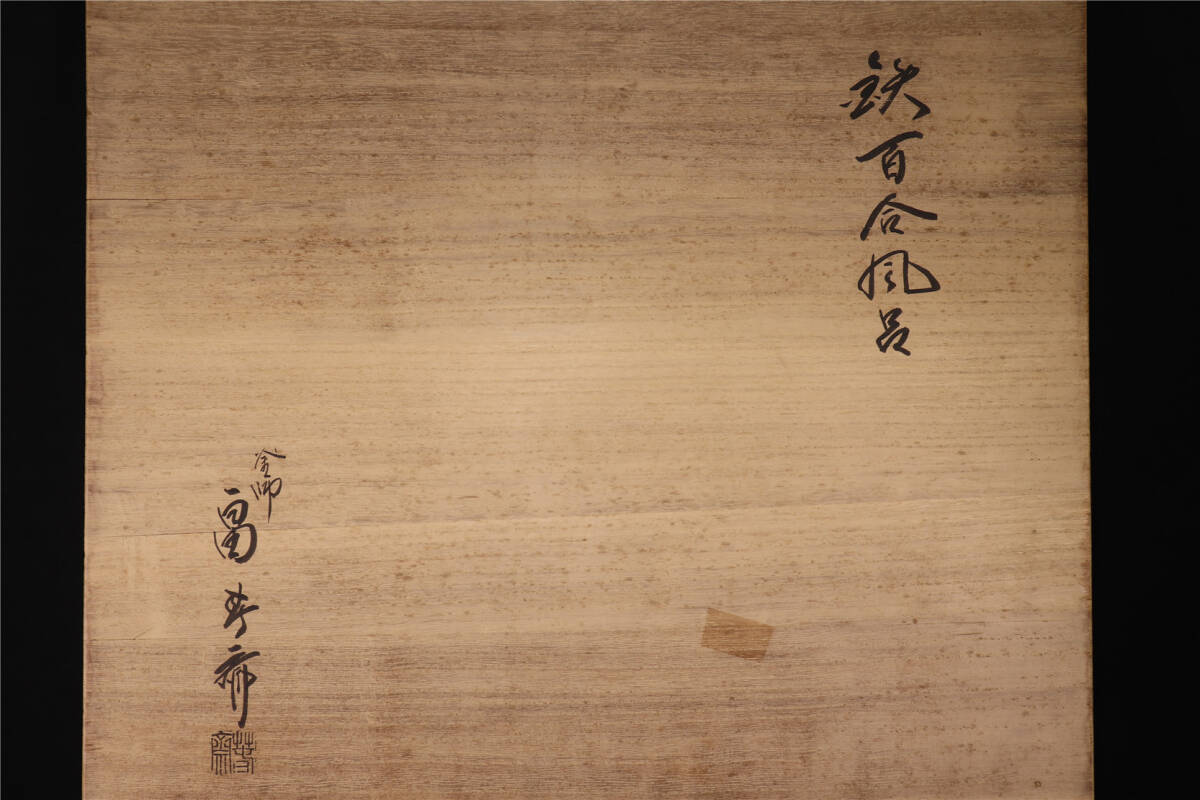 鉄百合風呂
釜師
畠春斎
春齋